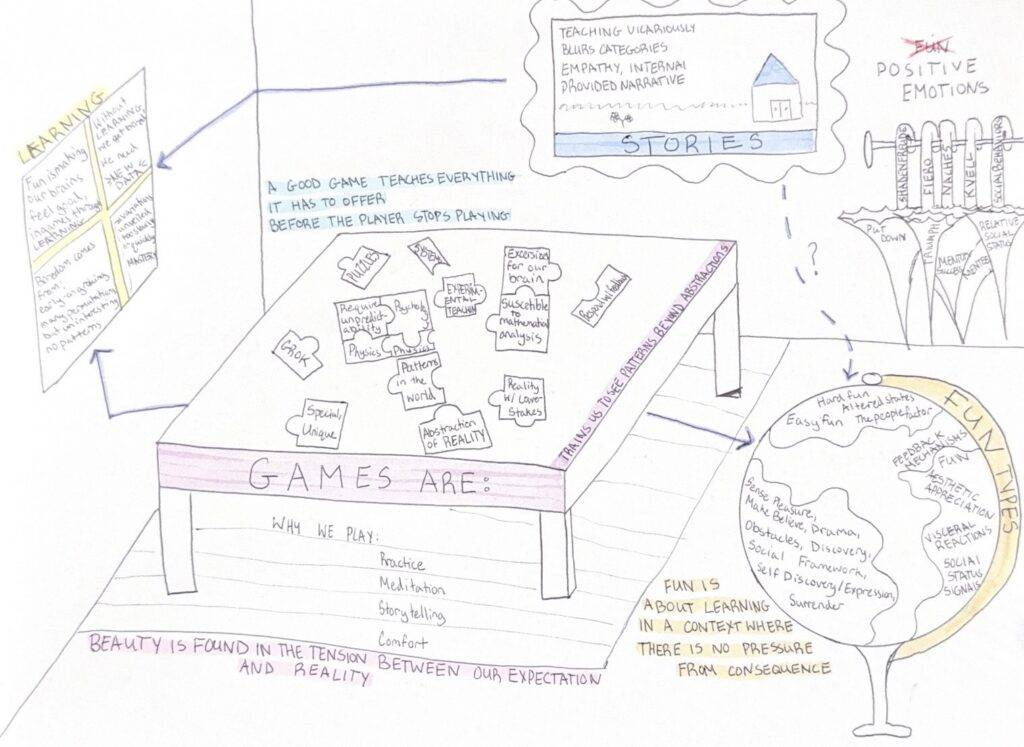 LEARNING
Fun is making
our brains
feel good,
in games through
LEARNING
Without
LEARNING,
we get bored.
We need
NEW
DATA
Boredom comes
from:
early on groking
many permutations
but uninteresting
no patterns
MASTERY
TEACHING VICARIOUSLY
BLURS CATEGORIES
EMPATHY, INTERNAL
PROVIDED NARRATIVE
STORIES
FUN
POSITIVE
EMOTIONS
SHADENFREUDE
FIERO
NACHES
KVELL
SOCIAL BEHAVIORS
PUT
DOWN
TRIUMPH
MENTOR
RELATIVE
SOCIAL
STATUS
A GOOD GAME TEACHES EVERYTHING
IT HAS TO OFFER
BEFORE THE PLAYER STOPS PLAYING
PUZZLES
SYSTEMS
EXPERIM-
ENTAL
TEACHING
Excersion
for our
brain
Susceptible
to
mathematical
analysis
Require
unpredict-
ability
Psychology
Physics
Physics
GROK
Patterns
in the
world
Special,
Unique
Abstraction
OF REALITY
Reality
w/ Lower
Stakes
TRAINS US TO SEE PATTERNS BEYOND ABSTRACTIONS
GAMES ARE:
WHY WE PLAY:
Practice
Meditation
Storytelling
Comfort
BEAUTY IS FOUND IN THE TENSION BETWEEN OUR EXPECTATION
AND REALITY
?
FUN TYPES
Hard fun
Altered states
Easy fun The people factor
FEEDBACK
MECHANISMS
FUN
AESTHETIC
APPRECIATION
VISCERAL
REACTIONS
SOCIAL
STATUS
SIGNALS
Sense Pleasure,
Make Believe, Drama,
Obstacles, Discovery,
Social Framework,
Self Discovery/Expression,
Surrender
FUN IS
ABOUT LEARNING
IN A CONTEXT WHERE
THERE IS NO PRESSURE
FROM CONSEQUENCE